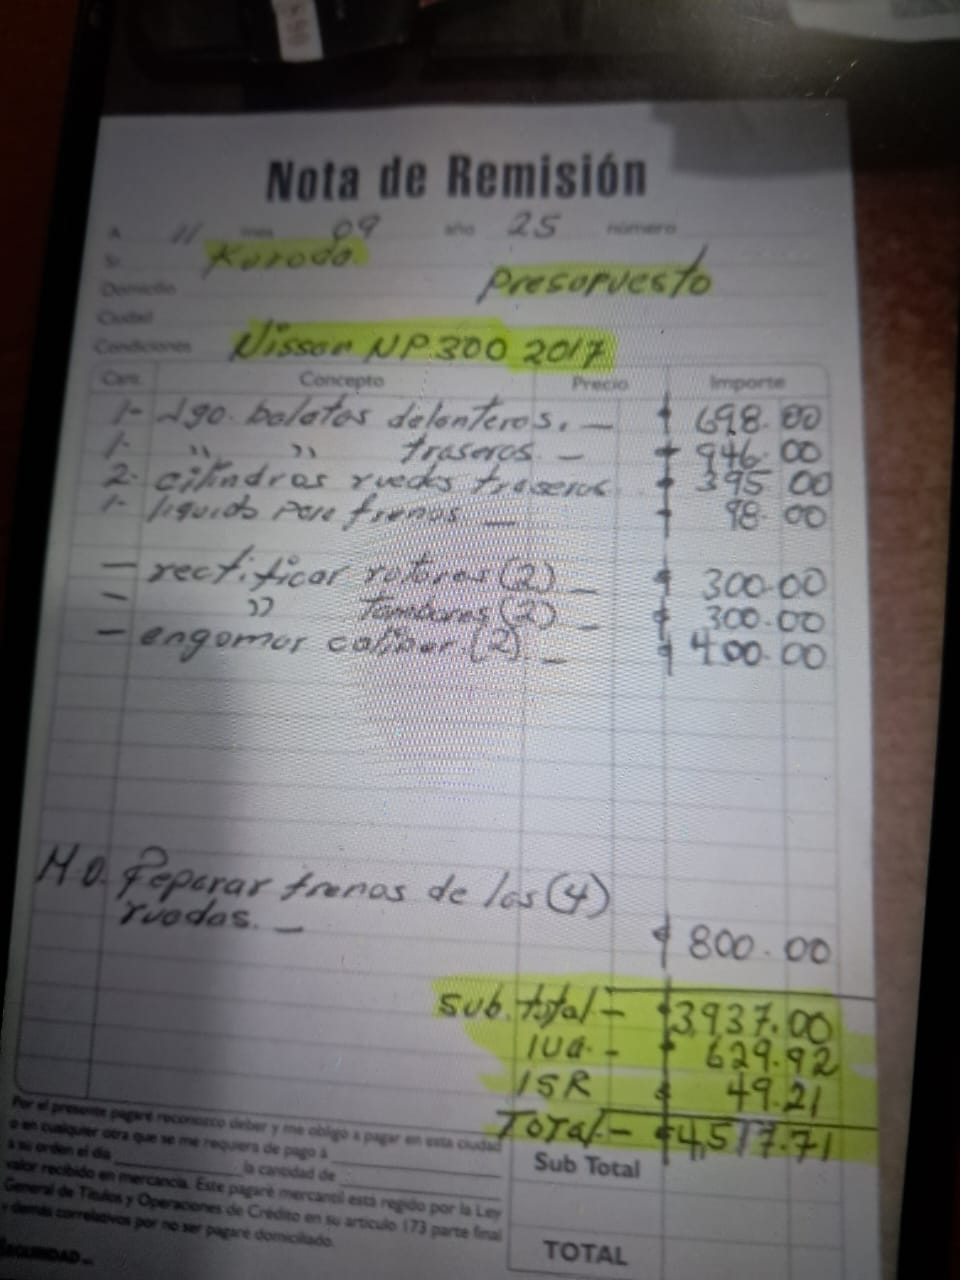 Nota de Remisión
A 11 mes 09 año 25 número
Sr. Kuroda
Domicilio Presupuesto
Ciudad
Condiciones Nissan NP300 2017
Cant. Concepto Precio Importe
1- Jgo. balatas delanteros. — $ 698.00
1- " " traseros. — $ 946.00
2- cilindros ruedas traseras $ 395 00
1- liquido para frenos — $ 98.00
— rectificar rotores (2) — $ 300.00
— " tambores (2) — $ 300.00
— engomar caliper (2) — $ 400.00
M.O. Reparar frenos de las (4)
ruedas. — $ 800.00
Sub. total — $3,937.00
IVA. — $ 629.92
ISR $ 49.21
Total. — $4,517.71
Por el presente pagaré reconozco deber y me obligo a pagar en esta ciudad
o en cualquier otra que se me requiera de pago á
a su orden el día la cantidad de
valor recibido en mercancía. Este pagaré mercantil está regido por la Ley
General de Títulos y Operaciones de Crédito en su articulo 173 parte final
y demás correlativos por no ser pagaré domiciliado.
Sub Total
TOTAL